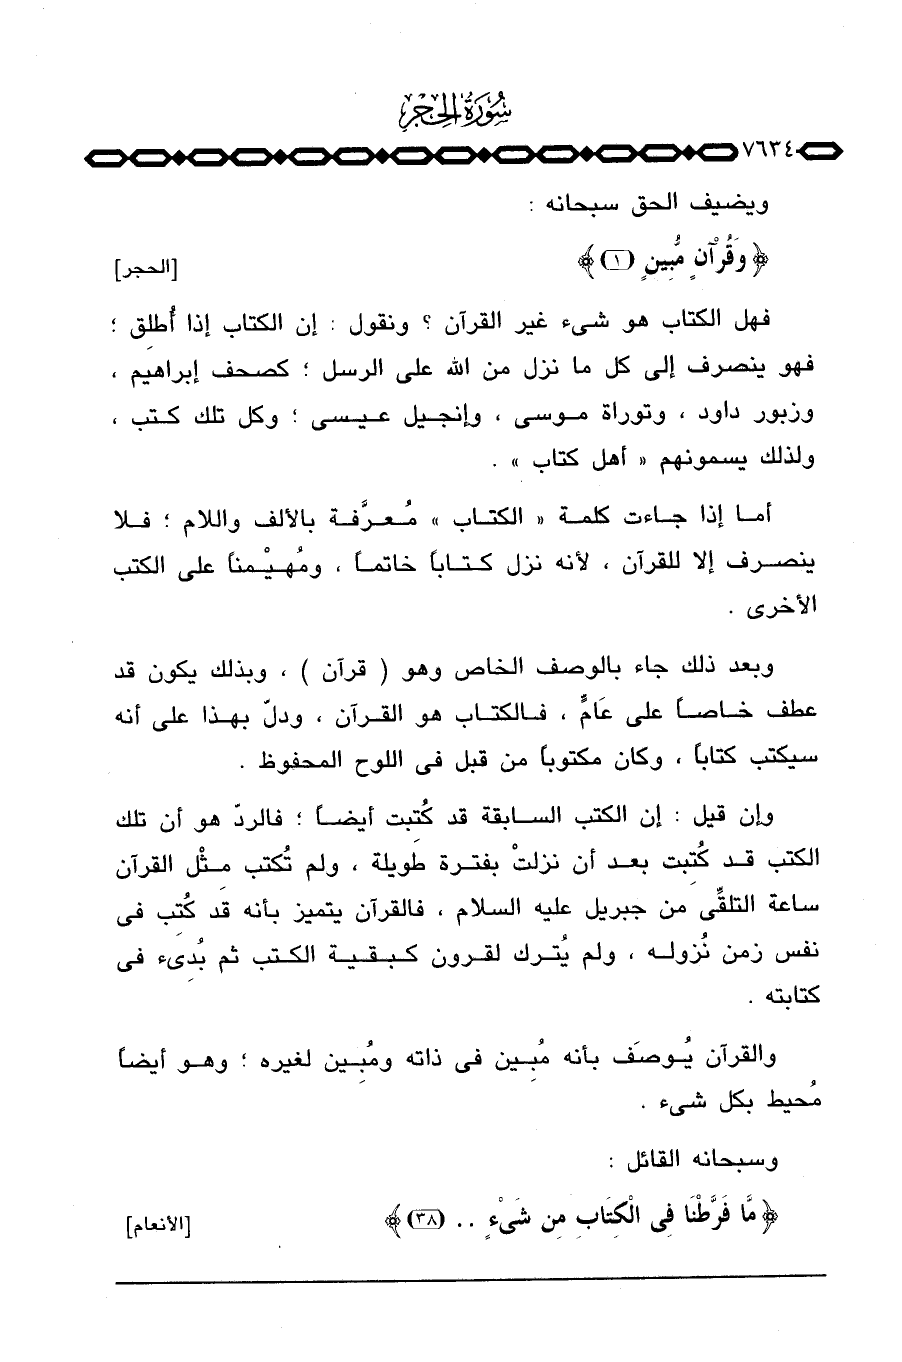 سُورَةُ الحِجْرِ
٧٦٣٤
ويضيف الحق سبحانه :
﴿ وَقُرْآنٍ مُّبِينٍ (١) ﴾ [الحجر]
فهل الكتاب هو شىء غير القرآن ؟ ونقول : إن الكتاب إذا أُطلِق ؛
فهو ينصرف إلى كل ما نزل من الله على الرسل ؛ كصحف إبراهيم ،
وزبور داود ، وتوراة موسى ، وإنجيل عيسى ؛ وكل تلك كتب ،
ولذلك يسمونهم « أهل كتاب » .
أما إذا جاءت كلمة « الكتاب » مُعرَّفة بالألف واللام ؛ فلا
ينصرف إلا للقرآن ، لأنه نزل كتاباً خاتماً ، ومُهيْمناً على الكتب
الأخرى .
وبعد ذلك جاء بالوصف الخاص وهو ( قرآن ) ، وبذلك يكون قد
عطف خاصاً على عَامٍّ ، فالكتاب هو القرآن ، ودلّ بهذا على أنه
سيكتب كتاباً ، وكان مكتوباً من قبل فى اللوح المحفوظ .
وإن قيل : إن الكتب السابقة قد كُتِبت أيضاً ؛ فالردّ هو أن تلك
الكتب قد كُتِبت بعد أن نزلتْ بفترة طويلة ، ولم تُكتب مثْل القرآن
ساعة التلقِّى من جبريل عليه السلام ، فالقرآن يتميز بأنه قد كُتِب فى
نفس زمن نُزوله ، ولم يُترك لقرون كبقية الكتب ثم بُدِىء فى
كتابته .
والقرآن يُوصَف بأنه مُبِين فى ذاته ومُبِين لغيره ؛ وهو أيضاً
مُحيط بكل شىء .
وسبحانه القائل :
﴿ مَّا فَرَّطْنَا فِى الْكِتَابِ مِن شَىْءٍ .. (٣٨) ﴾ [الأنعام]